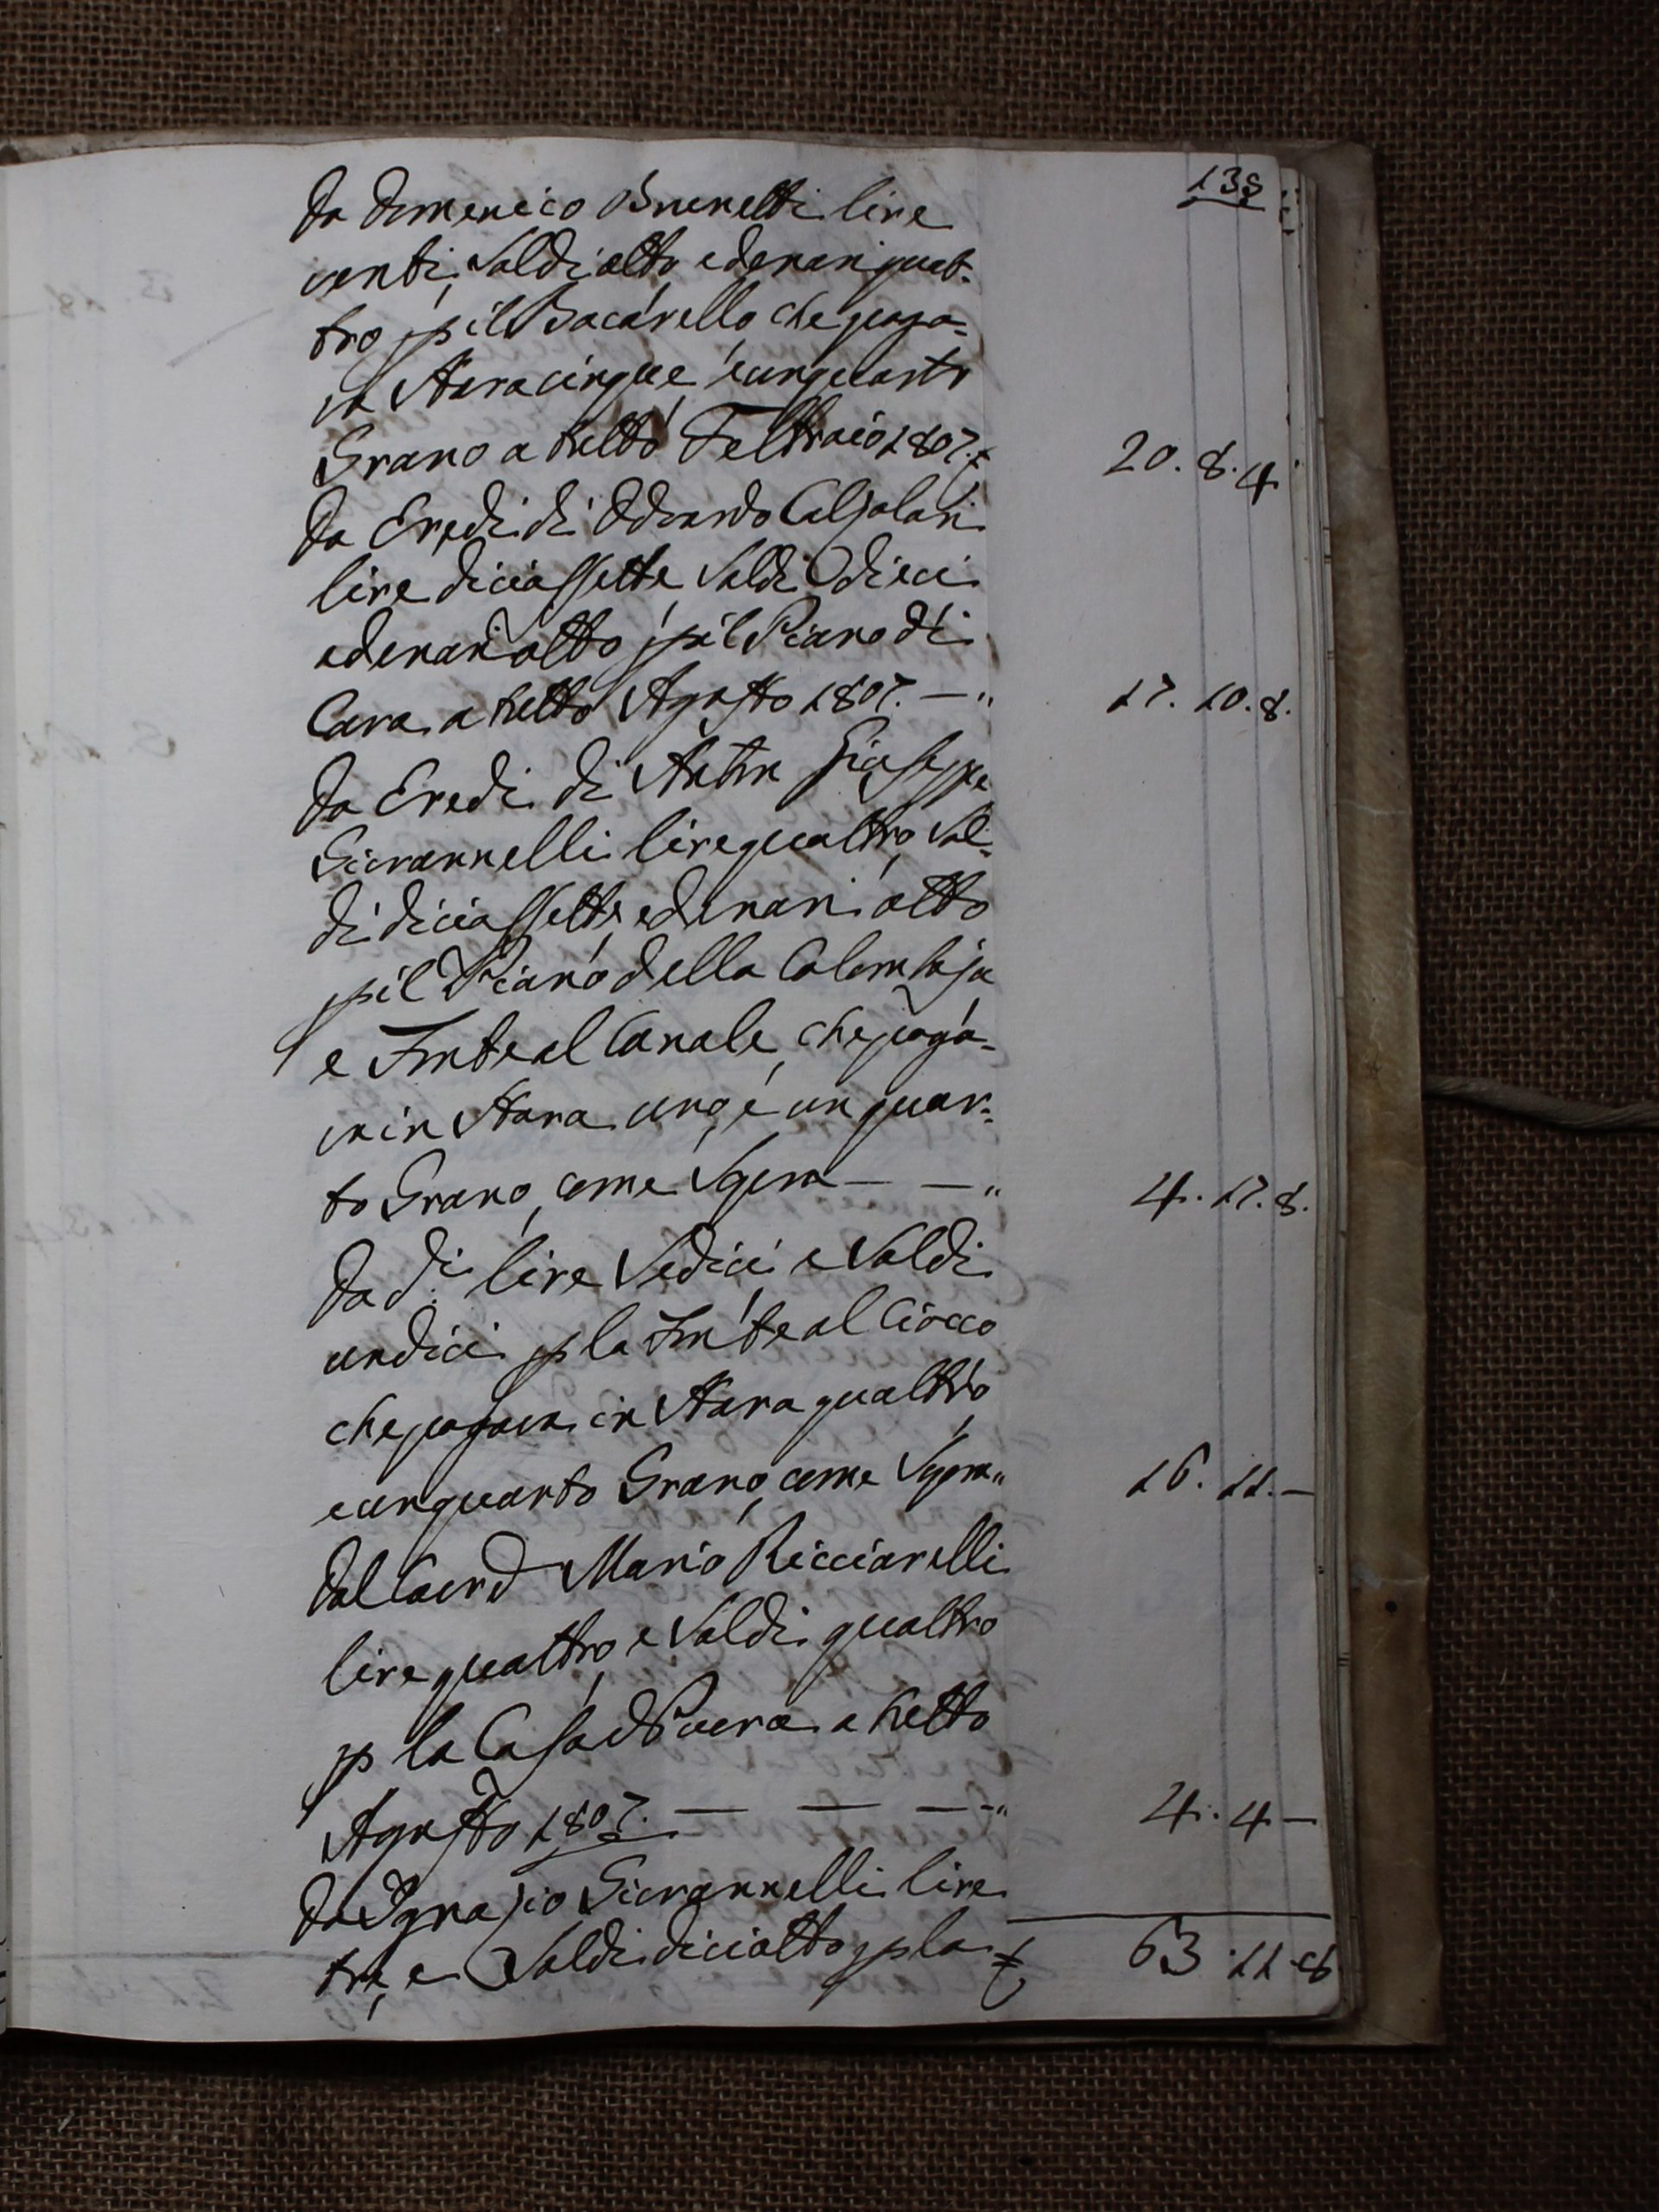 135
Da Domenico Brunetti lire
venti, Soldi otto, e denari quat-
tro p il Bacarello, che paga-
va Stara cinque, e un quarto
Grano a tutto Febbraio 1807. £ 20. 8. 4
Da Eredi di Odoardo Calzolari
lire diciassette, Soldi dieci
e denari otto p il Piano di
Cava a tutto Agosto 1807. — " 17. 10. 8.
Da Eredi di Anton Giuseppe
Giovannelli lire quattro, Sol-
di diciassette, e denari otto
p il Piano della Colombaja
e Fonte al Canale, che paga-
va in Stara uno, e un quar-
to Grano, come Sopra — — " 4. 17. 8.
Da di lire Sedici e Soldi
undici p la Fonte al Ciocco
che pagava in Stara quattro
e un quarto Grano, come Sopra " 16. 11. —
Dal Mario Ricciarelli
lire quattro, e Soldi quattro
p la Casa di a tutto
Agosto 1807. — — — " 4. 4 —
Da Ignazio Giovannelli lire
tre, e Soldi diciotto p la £ 63. 11. 8